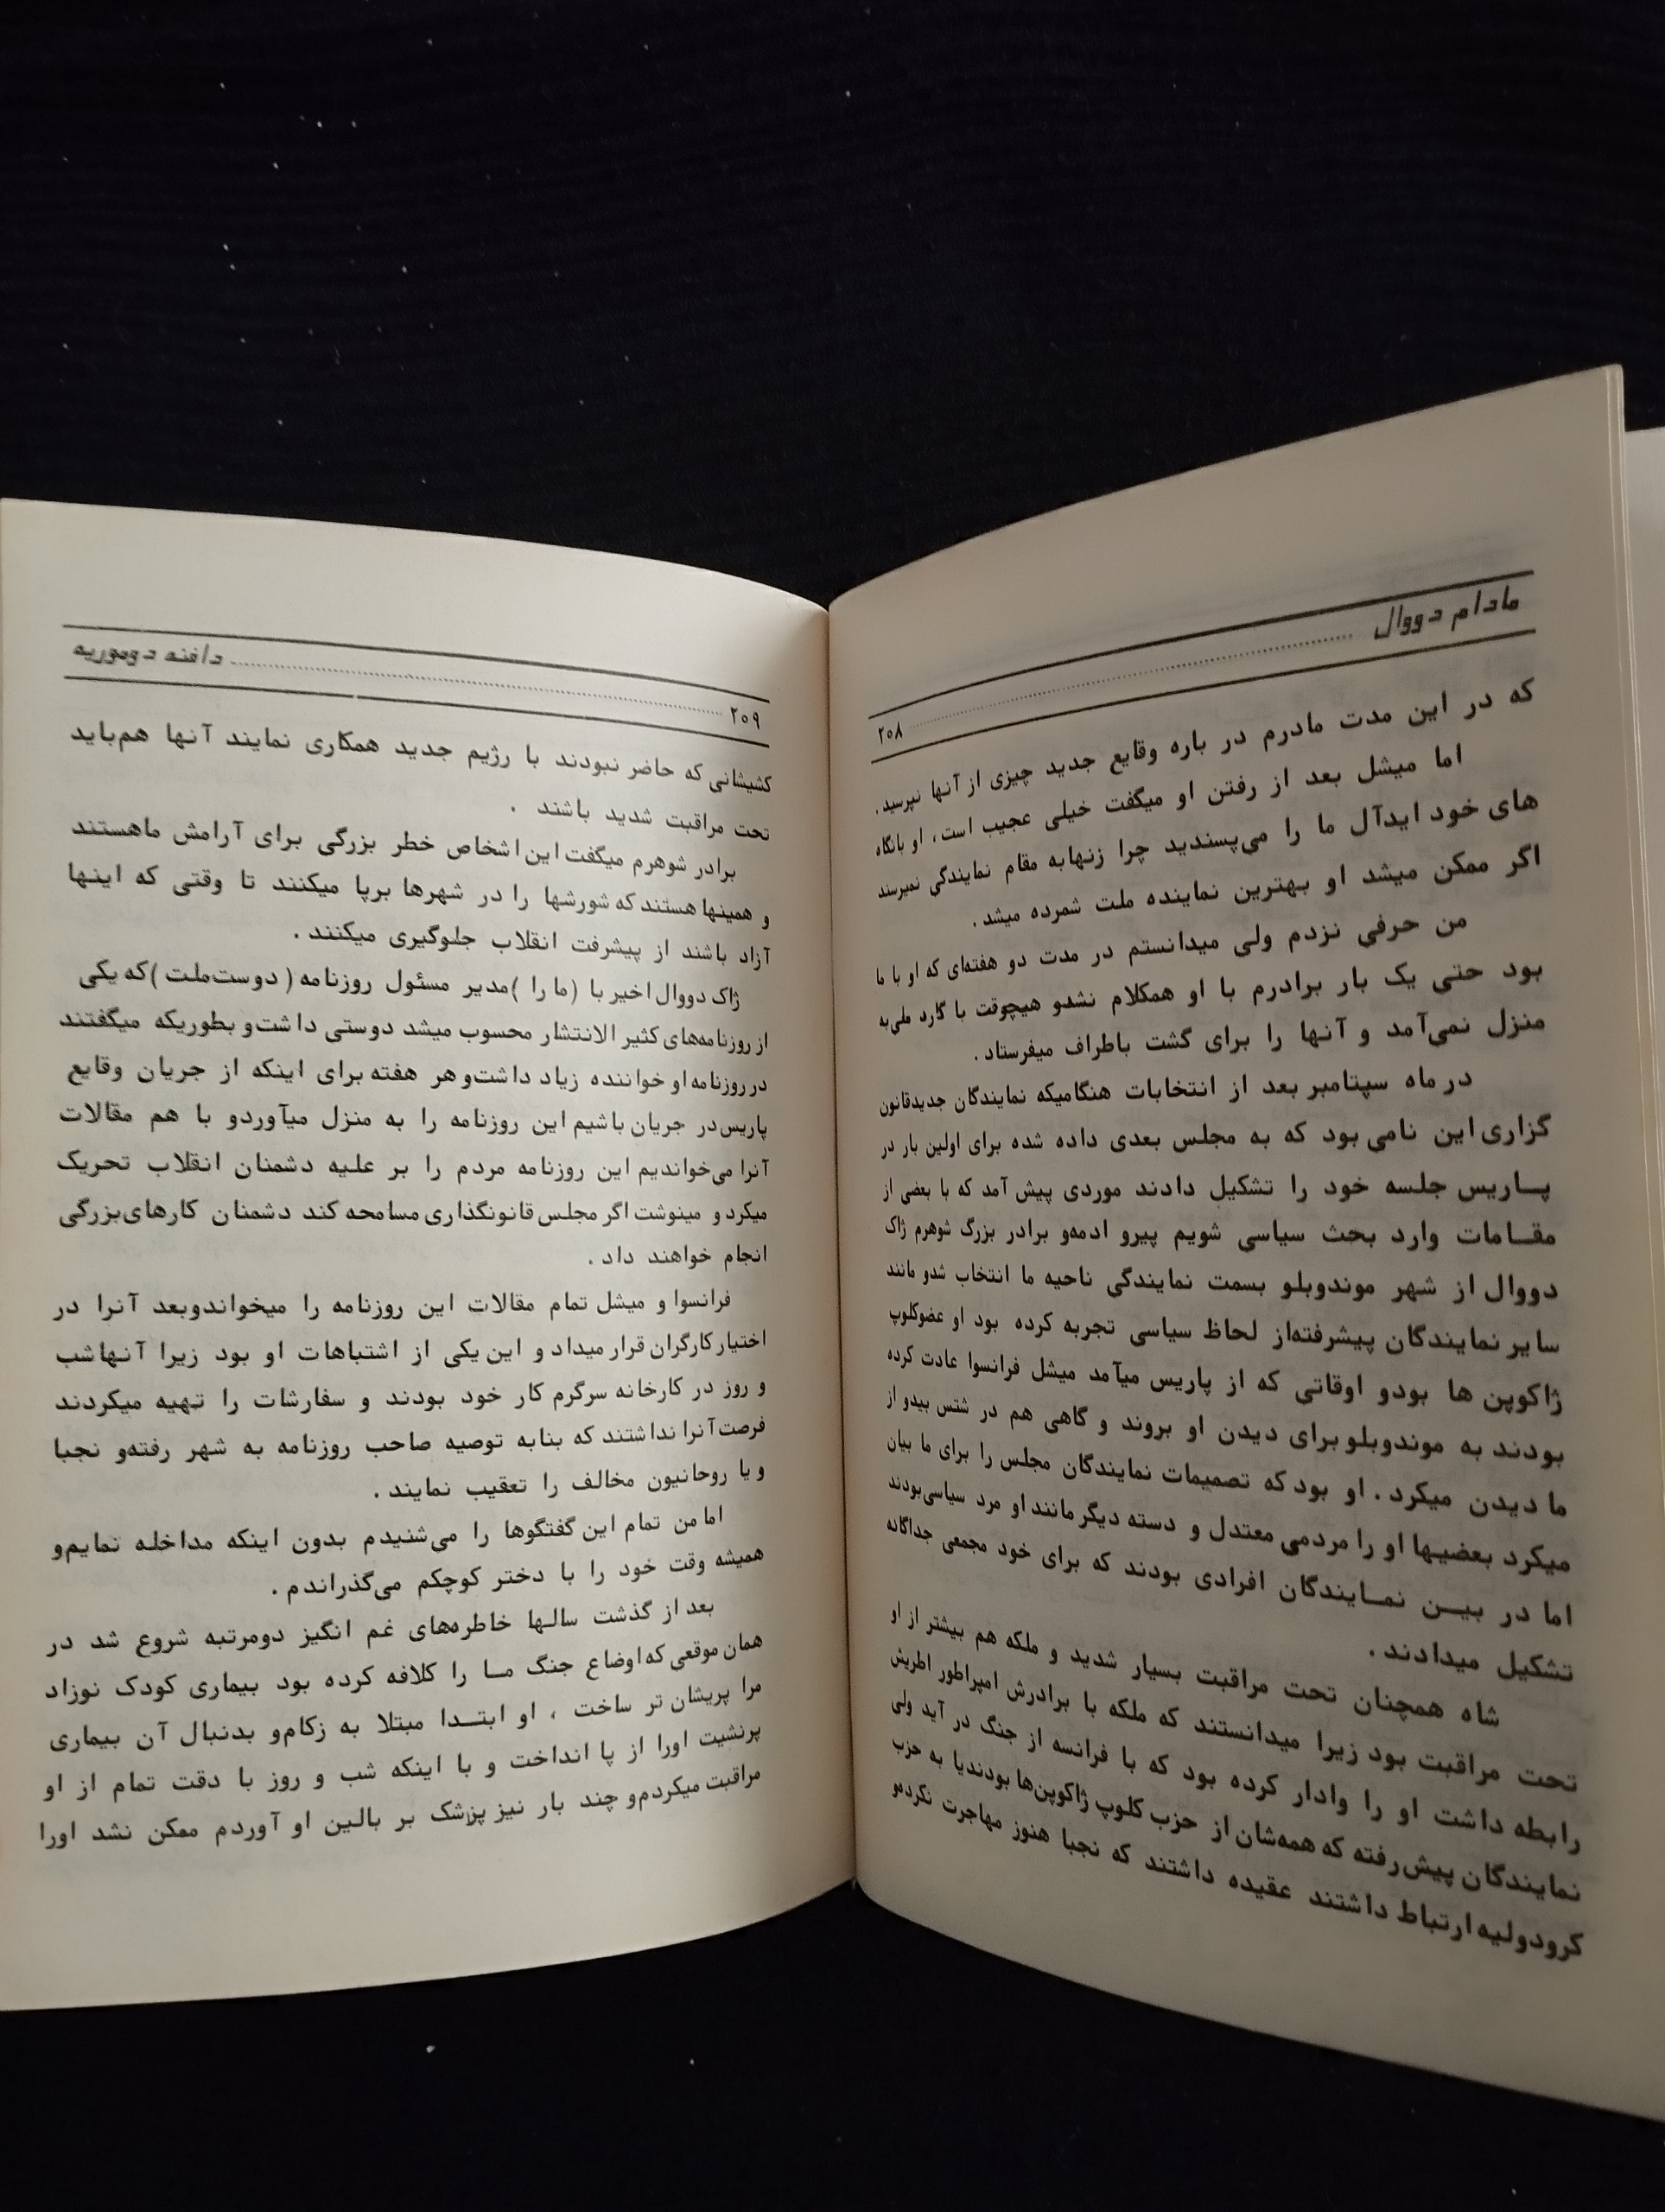 مادام دووال
۲۰۸
که در این مدت مادرم در باره وقایع جدید چیزی از آنها نپرسید.
اما میشل بعد از رفتن او میگفت خیلی عجیب است، او بانگاه
های خود ایدآل ما را می‌پسندید چرا زنهابه مقام نمایندگی نمیرسند
اگر ممکن میشد او بهترین نماینده ملت شمرده میشد.
من حرفی نزدم ولی میدانستم در مدت دو هفته‌ای که او با ما
بود حتی یک بار برادرم با او همکلام نشدو هیچوقت با گارد ملی‌به
منزل نمی‌آمد و آنها را برای گشت باطراف میفرستاد.
در ماه سپتامبر بعد از انتخابات هنگامیکه نمایندگان جدیدقانون
گزاری این نامی بود که به مجلس بعدی داده شده برای اولین بار در
پاریس جلسه خود را تشکیل دادند موردی پیش آمد که با بعضی از
مقامات وارد بحث سیاسی شویم پیرو ادمه‌و برادر بزرگ شوهرم ژاک
دووال از شهر موندوبلو بسمت نمایندگی ناحیه ما انتخاب شدو مانند
سایر نمایندگان پیشرفته‌از لحاظ سیاسی تجربه کرده بود او عضوکلوپ
ژاکوپن ها بودو اوقاتی که از پاریس میآمد میشل فرانسوا عادت کرده
بودند به موندوبلو برای دیدن او بروند و گاهی هم در شتس بیدو از
ما دیدن میکرد. او بود که تصمیمات نمایندگان مجلس را برای ما بیان
میکرد بعضیها او را مردمی معتدل و دسته دیگر مانند او مرد سیاسی‌بودند
اما در بین نمایندگان افرادی بودند که برای خود مجمعی جداگانه
تشکیل میدادند.
شاه همچنان تحت مراقبت بسیار شدید و ملکه هم بیشتر از او
تحت مراقبت بود زیرا میدانستند که ملکه با برادرش امپراطور اطریش
رابطه داشت او را وادار کرده بود که با فرانسه از جنگ در آید ولی
نمایندگان پیش‌رفته که همه‌شان از حزب کلوپ ژاکوپن‌ها بودندیا به حزب
کرودولیه ارتباط داشتند عقیده داشتند که نجبا هنوز مهاجرت نکرده‌و
دافنه دوموریه
۲۰۹
کشیشانی که حاضر نبودند با رژیم جدید همکاری نمایند آنها هم‌باید
تحت مراقبت شدید باشند.
برادر شوهرم میگفت این اشخاص خطر بزرگی برای آرامش ماهستند
و همینها هستند که شورشها را در شهرها برپا میکنند تا وقتی که اینها
آزاد باشند از پیشرفت انقلاب جلوگیری میکنند.
ژاک دووال اخیر با (ما را) مدیر مسئول روزنامه (دوست‌ملت) که یکی
از روزنامه‌های کثیر الانتشار محسوب میشد دوستی داشت‌و بطوریکه میگفتند
در روزنامه او خواننده زیاد داشت‌و هر هفته برای اینکه از جریان وقایع
پاریس در جریان باشیم این روزنامه را به منزل میآوردو با هم مقالات
آنرا می‌خواندیم این روزنامه مردم را بر علیه دشمنان انقلاب تحریک
میکرد و مینوشت اگر مجلس قانونگذاری مسامحه کند دشمنان کارهای‌بزرگی
انجام خواهند داد.
فرانسوا و میشل تمام مقالات این روزنامه را میخواندوبعد آنرا در
اختیار کارگران قرار میداد و این یکی از اشتباهات او بود زیرا آنهاشب
و روز در کارخانه سرگرم کار خود بودند و سفارشات را تهیه میکردند
فرصت آنرا نداشتند که بنابه توصیه صاحب روزنامه به شهر رفته‌و نجبا
و یا روحانیون مخالف را تعقیب نمایند.
اما من تمام این گفتگوها را می‌شنیدم بدون اینکه مداخله نمایم‌و
همیشه وقت خود را با دختر کوچکم می‌گذراندم.
بعد از گذشت سالها خاطره‌های غم انگیز دومرتبه شروع شد در
همان موقعی که اوضاع جنگ ما را کلافه کرده بود بیماری کودک نوزاد
مرا پریشان تر ساخت ، او ابتدا مبتلا به زکام‌و بدنبال آن بیماری
پرنشیت اورا از پا انداخت و با اینکه شب و روز با دقت تمام از او
مراقبت میکردم‌و چند بار نیز پزشک بر بالین او آوردم ممکن نشد اورا